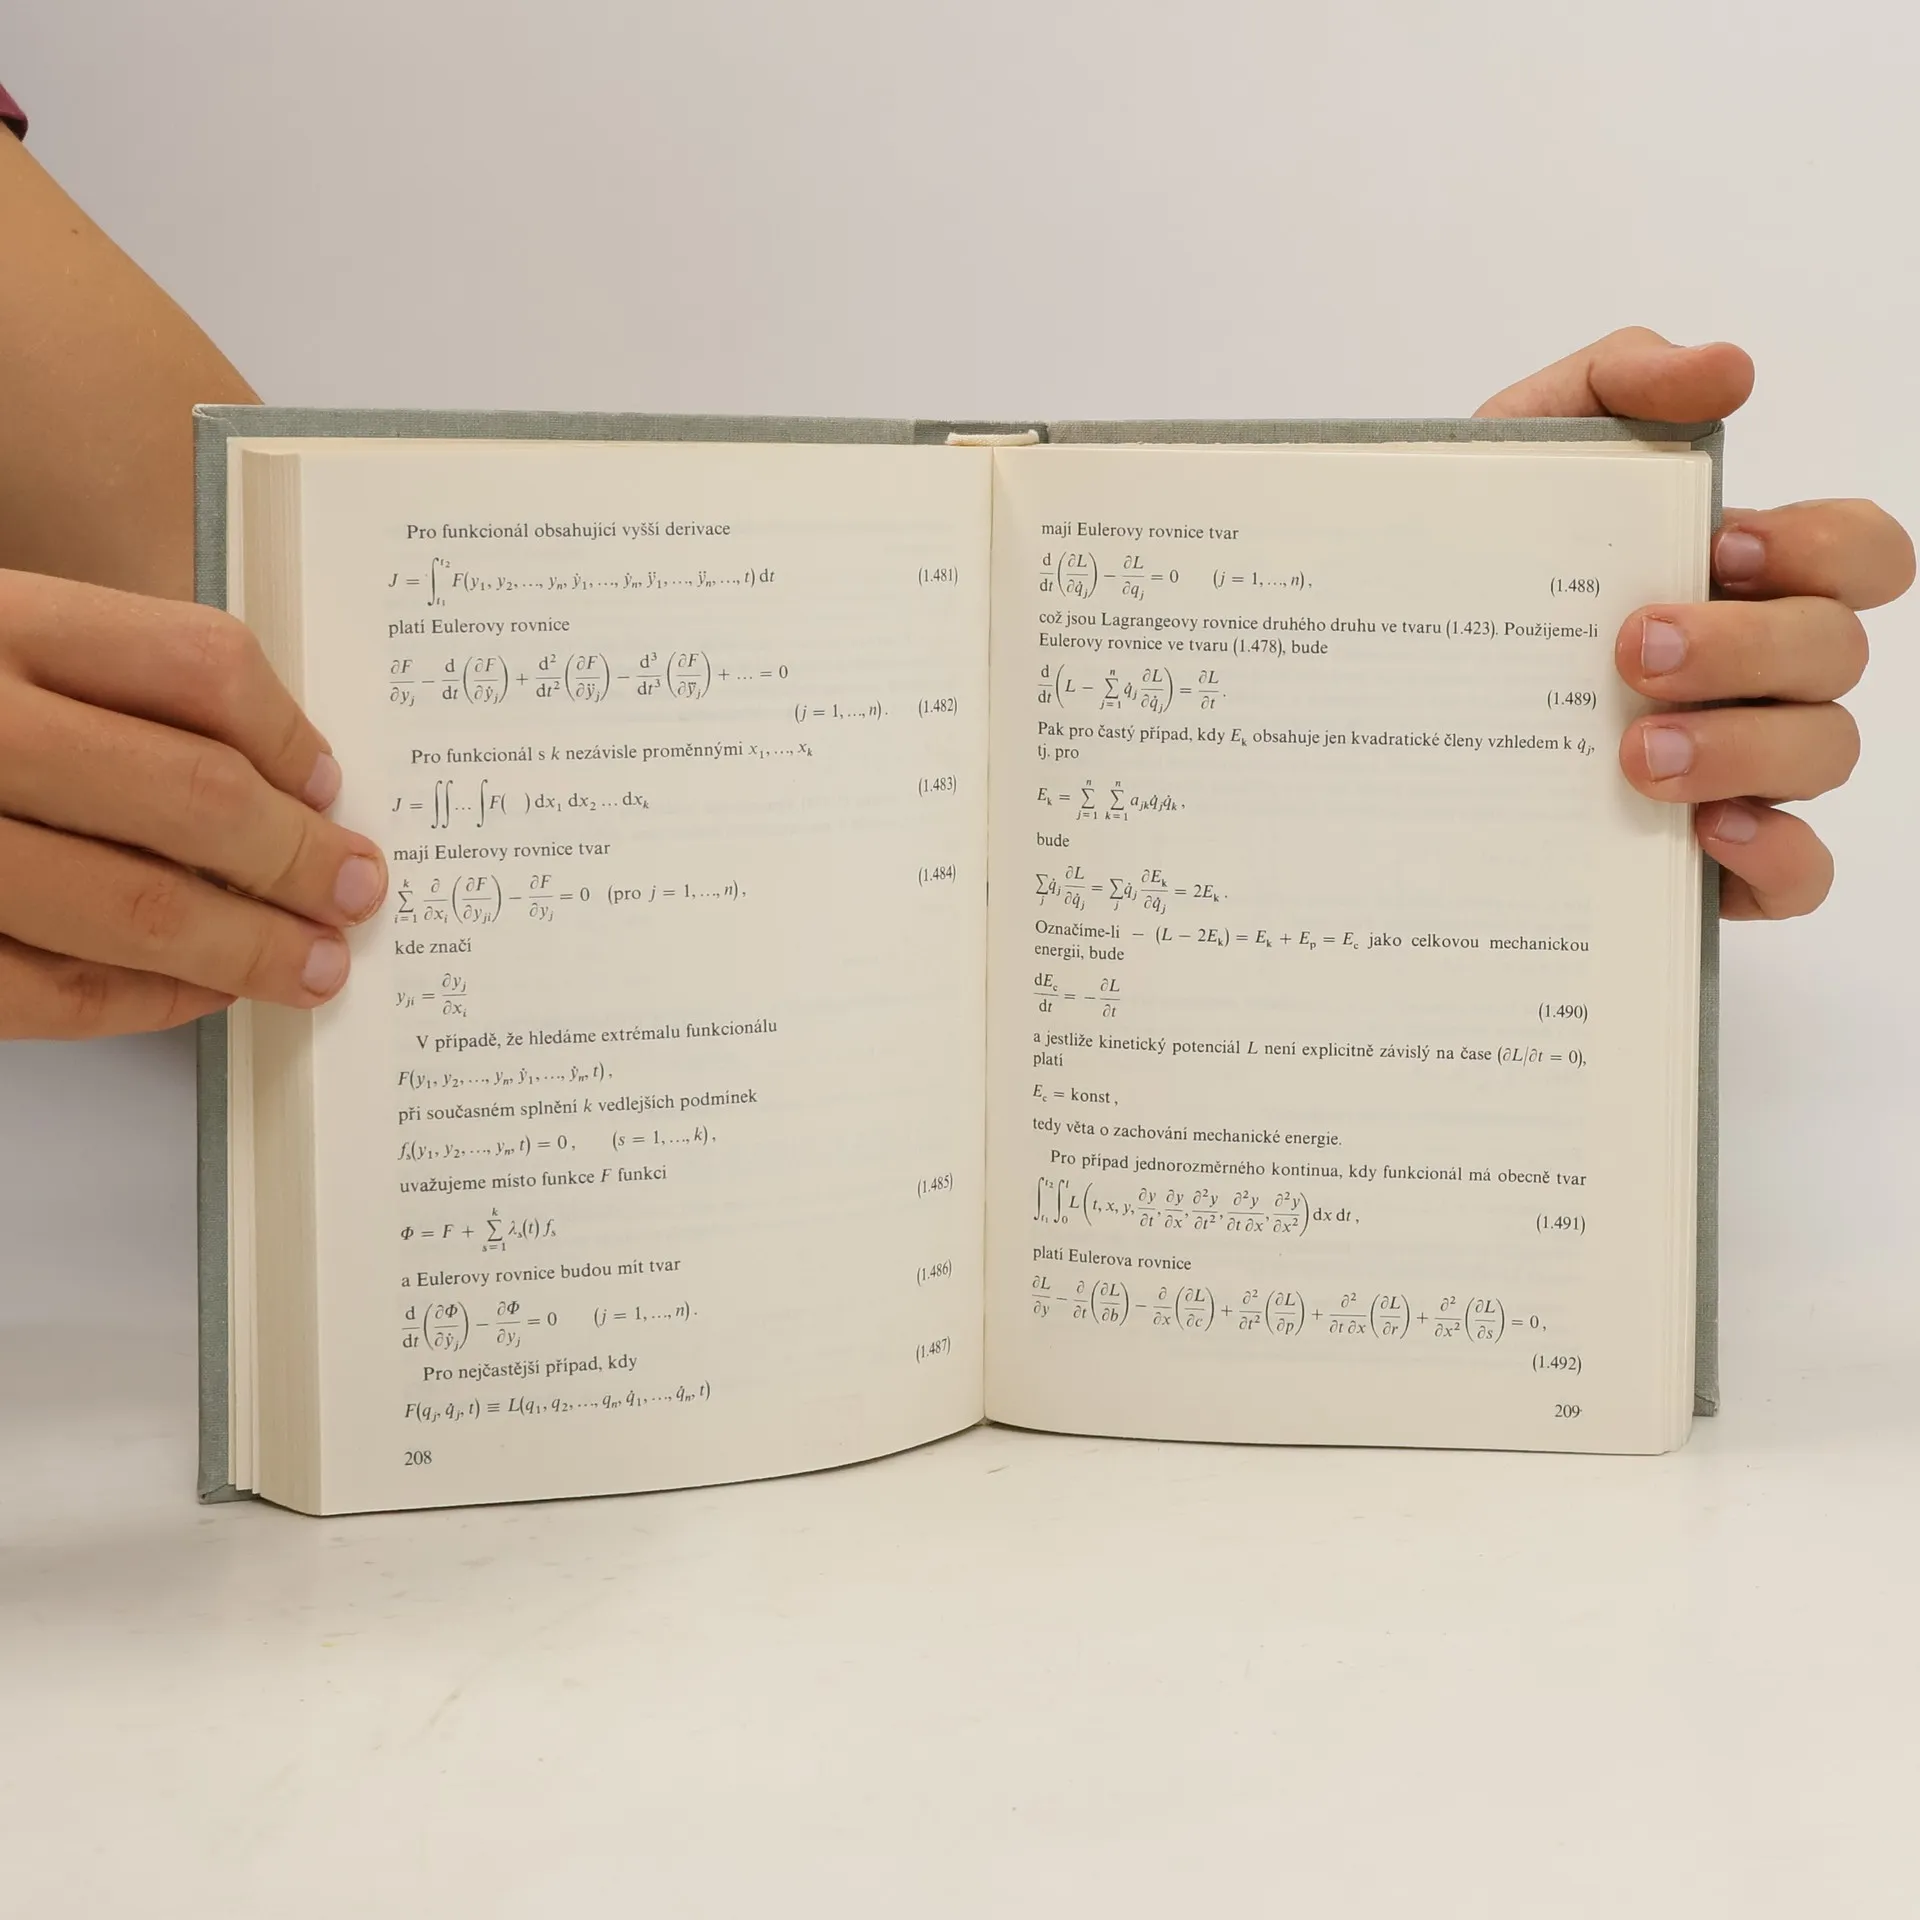 Pro funkcionál obsahující vyšší derivace
J = ∫_{t₁}^{t₂} F(y₁, y₂, ..., yₙ, ẏ₁, ..., ẏₙ, ÿ₁, ..., ÿₙ, ..., t) dt (1.481)
platí Eulerovy rovnice
∂F/∂yⱼ − d/dt (∂F/∂ẏⱼ) + d²/dt² (∂F/∂ÿⱼ) − d³/dt³ (∂F/∂y⃛ⱼ) + ... = 0
(j = 1, ..., n). (1.482)
Pro funkcionál s k nezávisle proměnnými x₁, ..., xₖ
J = ∫∫ ... ∫ F( ) dx₁ dx₂ ... dxₖ (1.483)
mají Eulerovy rovnice tvar
∑_{i=1}^{k} ∂/∂xᵢ (∂F/∂yⱼᵢ) − ∂F/∂yⱼ = 0 (pro j = 1, ..., n), (1.484)
kde značí
yⱼᵢ = ∂yⱼ/∂xᵢ
V případě, že hledáme extrémalu funkcionálu
F(y₁, y₂, ..., yₙ, ẏ₁, ..., ẏₙ, t),
při současném splnění k vedlejších podmínek
fₛ(y₁, y₂, ..., yₙ, t) = 0, (s = 1, ..., k),
uvažujeme místo funkce F funkci
Φ = F + ∑_{s=1}^{k} λₛ(t) fₛ (1.485)
a Eulerovy rovnice budou mít tvar
d/dt (∂Φ/∂ẏⱼ) − ∂Φ/∂yⱼ = 0 (j = 1, ..., n). (1.486)
Pro nejčastější případ, kdy
F(qⱼ, q̇ⱼ, t) ≡ L(q₁, q₂, ..., qₙ, q̇₁, ..., q̇ₙ, t) (1.487)
208
mají Eulerovy rovnice tvar
d/dt (∂L/∂q̇ⱼ) − ∂L/∂qⱼ = 0 (j = 1, ..., n), (1.488)
což jsou Lagrangeovy rovnice druhého druhu ve tvaru (1.423). Použijeme-li
Eulerovy rovnice ve tvaru (1.478), bude
d/dt (L − ∑_{j=1}^{n} q̇ⱼ ∂L/∂q̇ⱼ) = ∂L/∂t. (1.489)
Pak pro častý případ, kdy Eₖ obsahuje jen kvadratické členy vzhledem k q̇ⱼ,
tj. pro
Eₖ = ∑_{j=1}^{n} ∑_{k=1}^{n} aⱼₖq̇ⱼq̇ₖ,
bude
∑_j q̇ⱼ ∂L/∂q̇ⱼ = ∑_j q̇ⱼ ∂Eₖ/∂q̇ⱼ = 2Eₖ.
Označíme-li − (L − 2Eₖ) = Eₖ + Eₚ = E_c jako celkovou mechanickou
energii, bude
dE_c/dt = − ∂L/∂t (1.490)
a jestliže kinetický potenciál L není explicitně závislý na čase (∂L/∂t = 0),
platí
E_c = konst,
tedy věta o zachování mechanické energie.
Pro případ jednorozměrného kontinua, kdy funkcionál má obecně tvar
∫_{t₁}^{t₂} ∫_{0}^{l} L (t, x, y, ∂y/∂t, ∂y/∂x, ∂²y/∂t², ∂²y/∂t ∂x, ∂²y/∂x²) dx dt, (1.491)
platí Eulerova rovnice
∂L/∂y − ∂/∂t (∂L/∂b) − ∂/∂x (∂L/∂c) + ∂²/∂t² (∂L/∂p) + ∂²/∂t ∂x (∂L/∂r) + ∂²/∂x² (∂L/∂s) = 0,
(1.492)
209